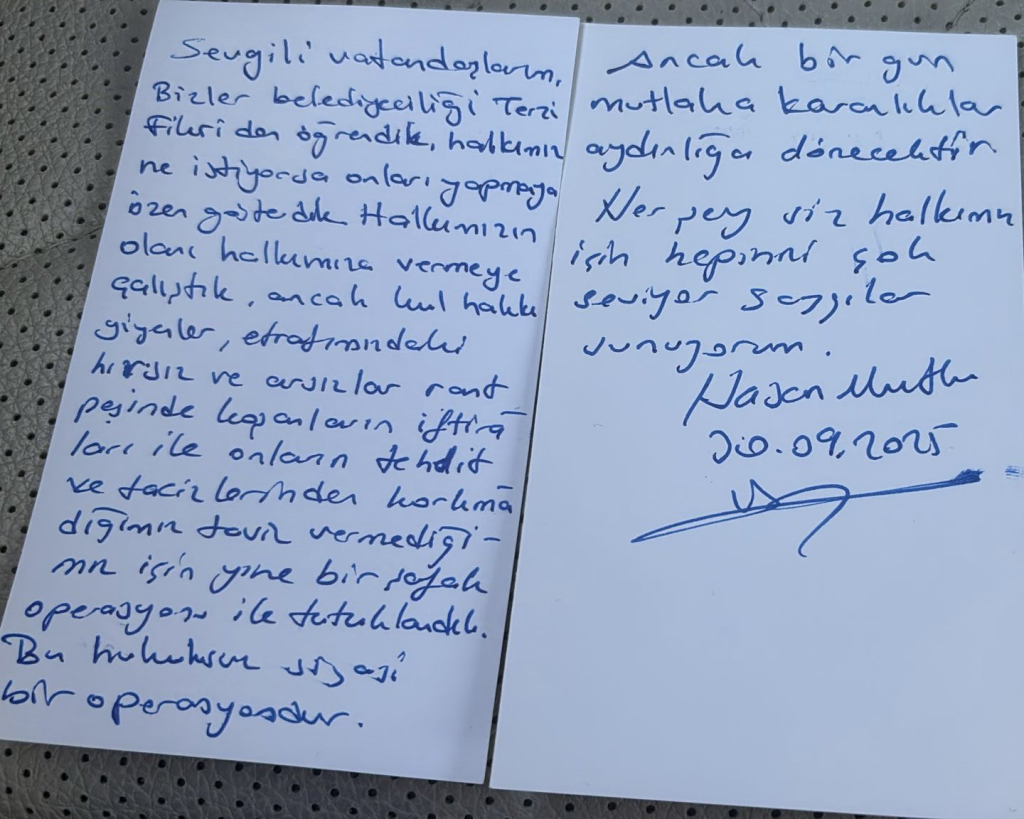 Sevgili vatandaşlarım,
Bizler belediyeciliği Terzi
Fikri den öğrendik, halkımız
ne istiyorsa onları yapmaya
özen gösterdik Halkımızın
olanı halkımıza vermeye
çalıştık, ancak kul hakkı
yiyenler, etrafımızdaki
hırsız ve arsızlar rant
peşinde koşanların iftira
ları ile onların tehdit
ve tacizlerinden korkma
dığımız taviz vermediği-
miz için yine bir şafak
operasyonu ile tutuklandık.
Bu hukuksuz siyasi
bir operasyondur.
Ancak bir gün
mutlaka karanlıklar
aydınlığa dönecektir
Her şey siz halkımız
için hepinizi çok
seviyor saygılar
sunuyorum.
Hasan Mutlu
20.09.2025